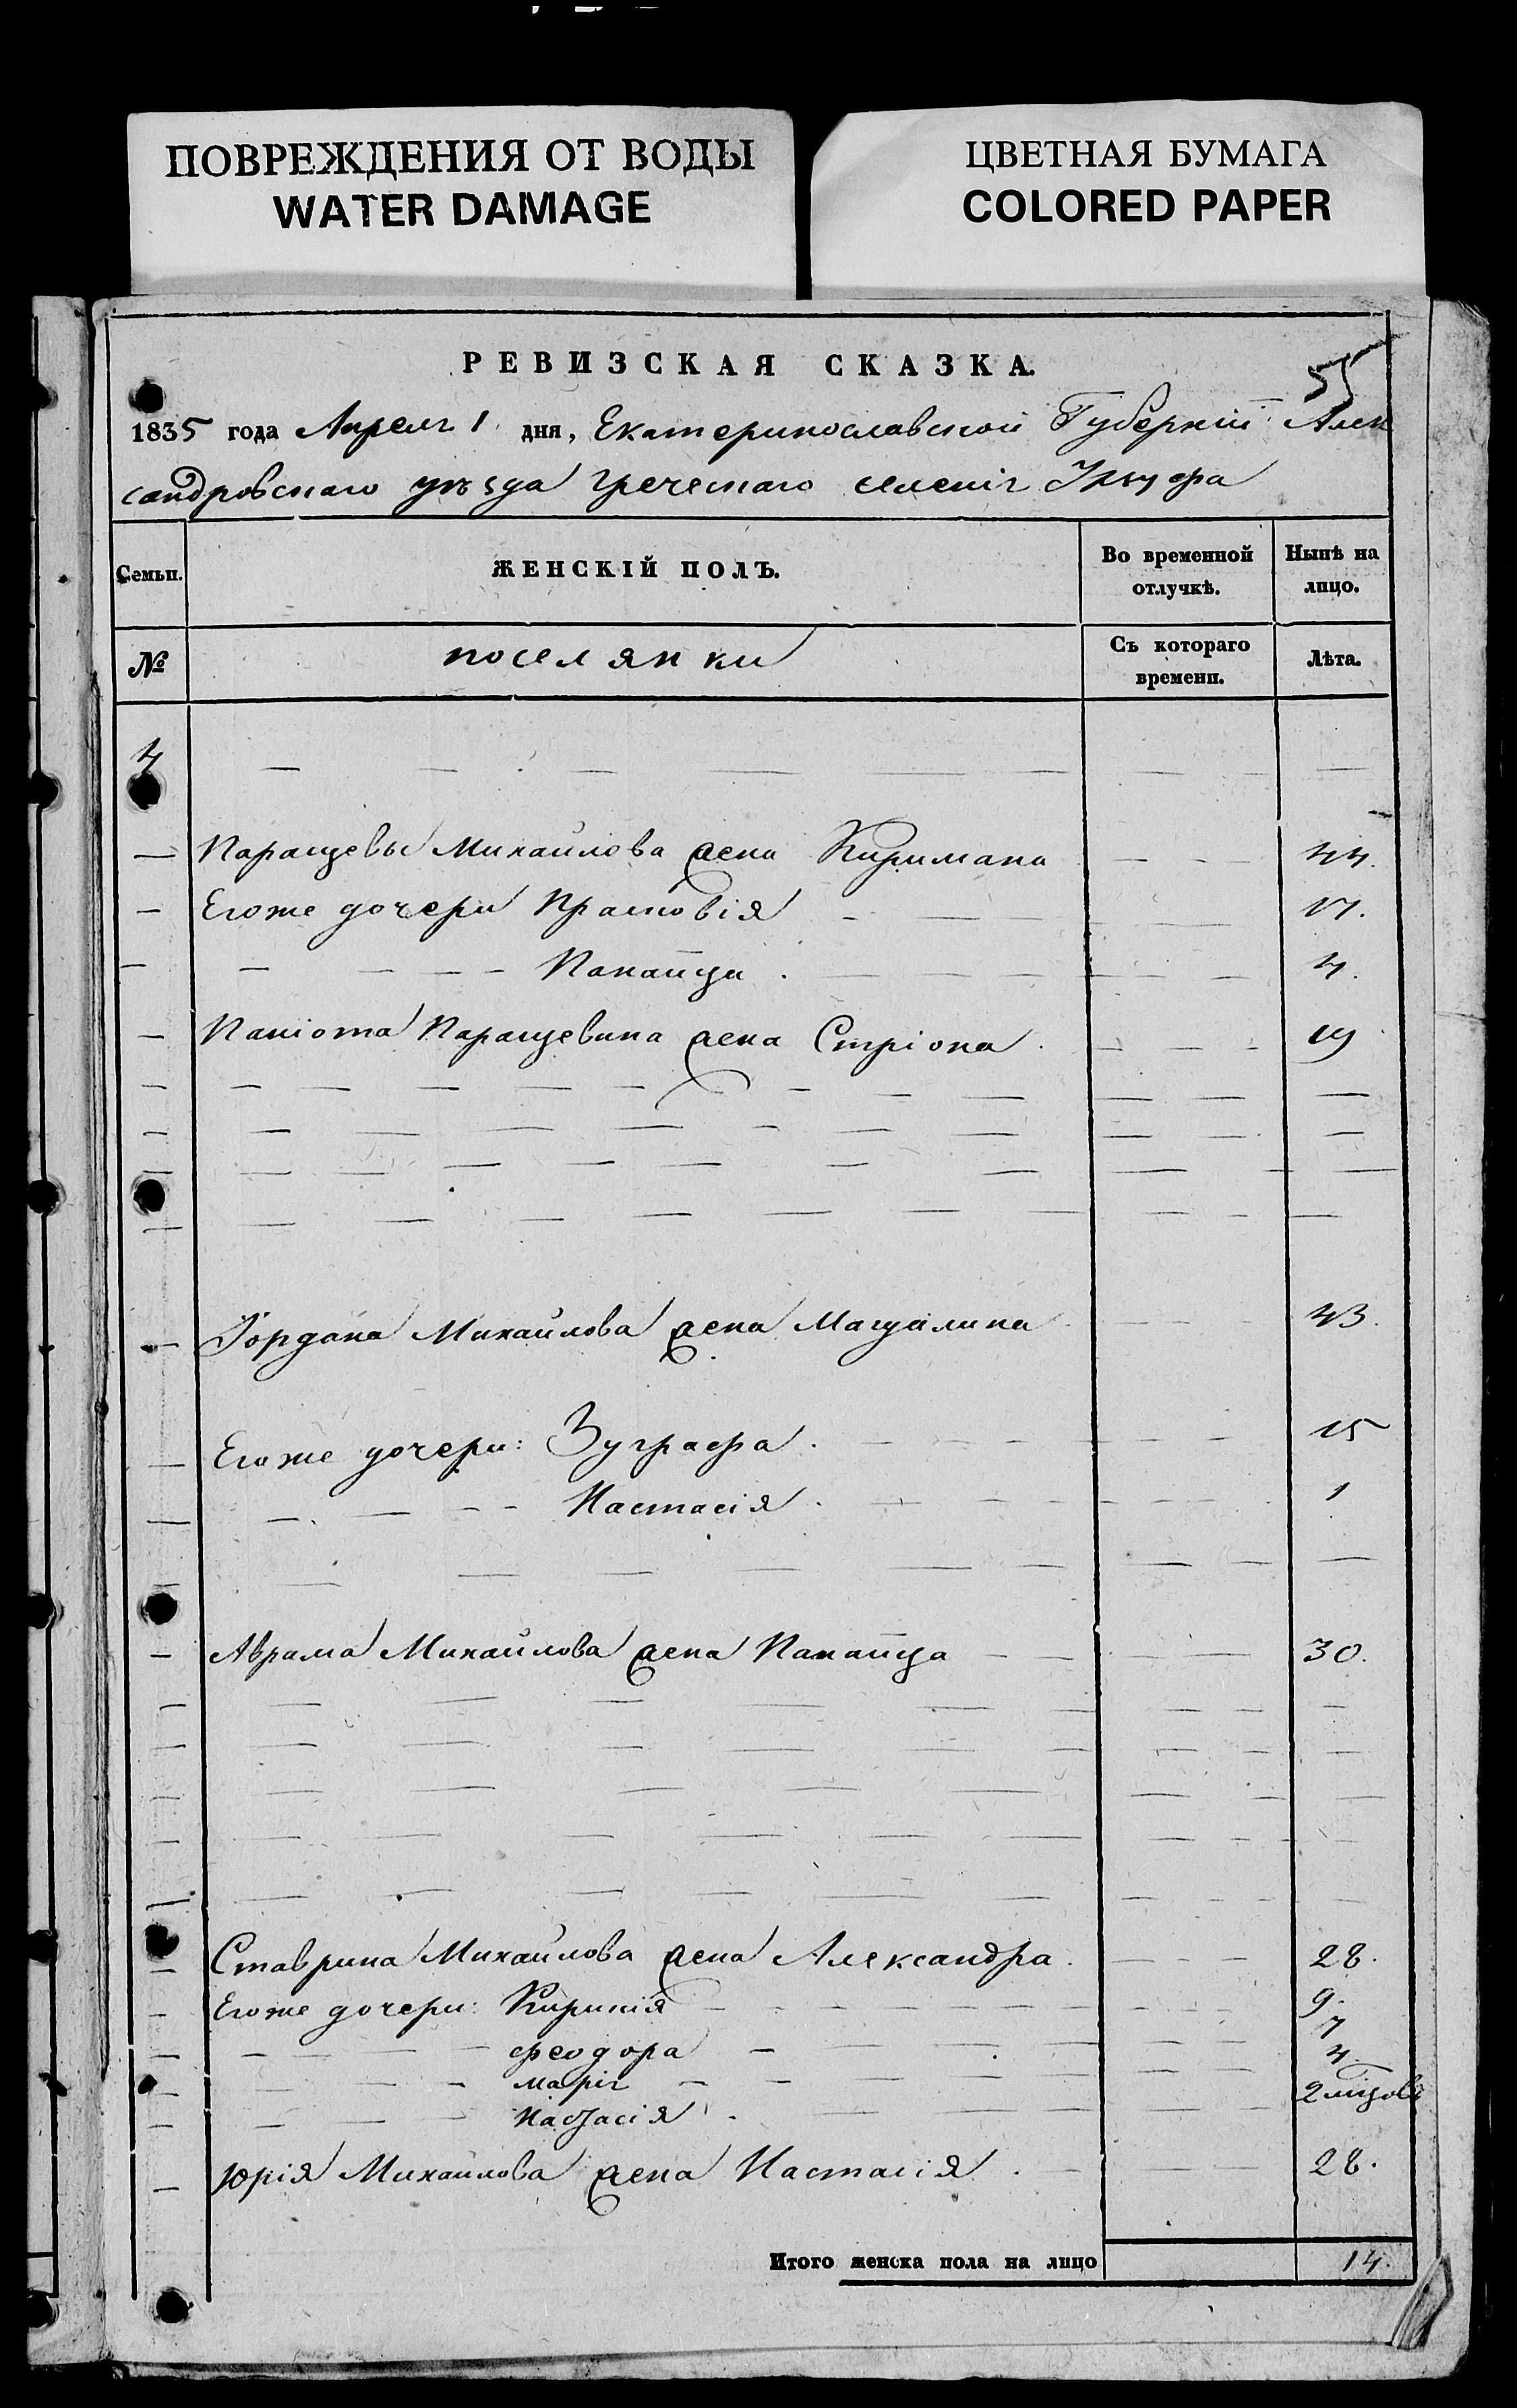 ПОВРЕЖДЕНИЯ ОТ ВОДЫ
WATER DAMAGE
ЦВЕТНАЯ БУМАГА
COLORED PAPER
РЕВИЗСКАЯ СКАЗКА.
55
1835 года Апреля 1 дня, Екатеринославской Губерніи Алек
сандровскаго уѣзда Греческаго селенія
Семьи.
ЖЕНСКІЙ ПОЛЪ.
Во временной отлучкѣ.
Нынѣ на лицо.
№
поселянки
Съ котораго времени.
Лѣта.
4
Паращевы Михайлова жена Киримана 44.
Егоже дочери Прасковія 17.
Панаица 4.
Паніота Паращевина жена Стріона 19
Іордана Михайлова жена Магдалина 43.
Егоже дочери: Зуграфа 15
Настасія 1
Аврама Михайлова жена Панаица 30.
Ставрина Михайлова жена Александра 28.
Егоже дочери: Кирикія 9.
феодора 7
марія 4.
Настасія 2 мѣсцовъ
Юрія Михайлова жена Настасія 28.
Итого женска пола на лицо 14.